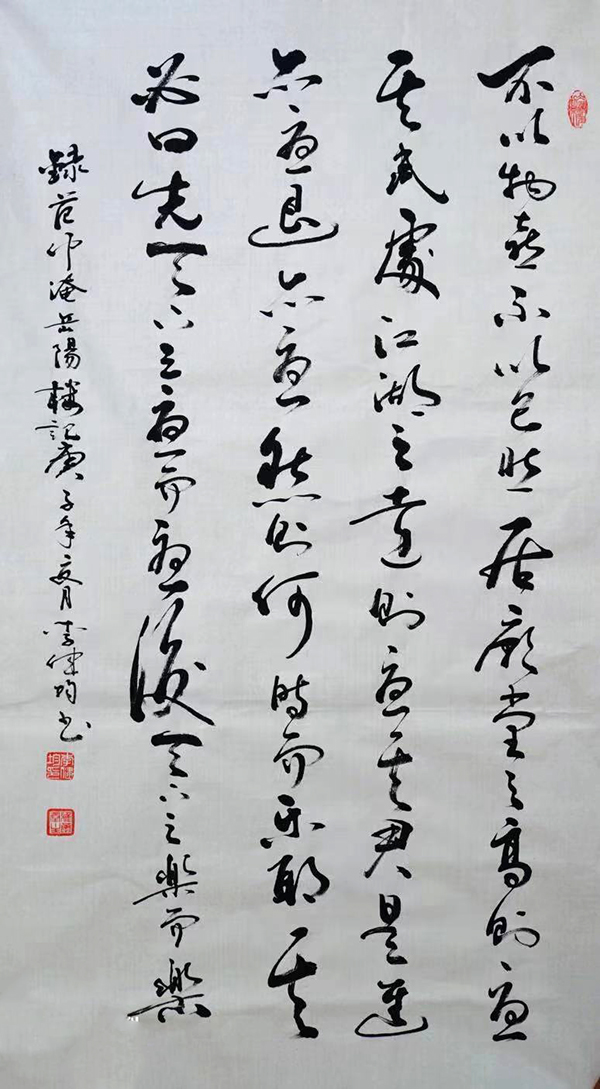 不以物喜不以己悲居廟堂之高則憂
其民處江湖之遠則憂其君是進
亦憂退亦憂然則何時而乐耶其
必曰先天下之憂而憂後天下之樂而樂
録范仲淹岳陽樓記庚子年夏月李健均书